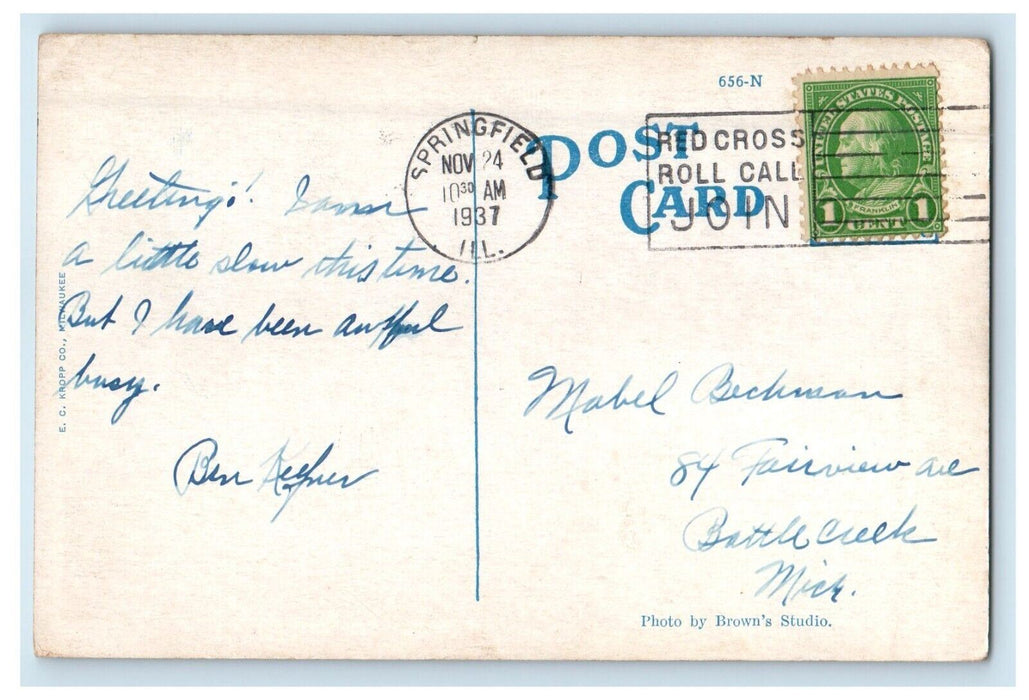 656-N
POST
CARD
SPRINGFIELD
NOV 24
10 30 AM
1937
ILL.
RED CROSS
ROLL CALL
JOIN
UNITED STATES POSTAGE
FRANKLIN
1 CENT 1
Greetings! I am
a little slow this time.
But I have been awful
busy.
Ben
E. C. KROPP CO., MILWAUKEE
Mabel Beckman
84 Fairview Ave
Battle Creek
Mich.
Photo by Brown's Studio.